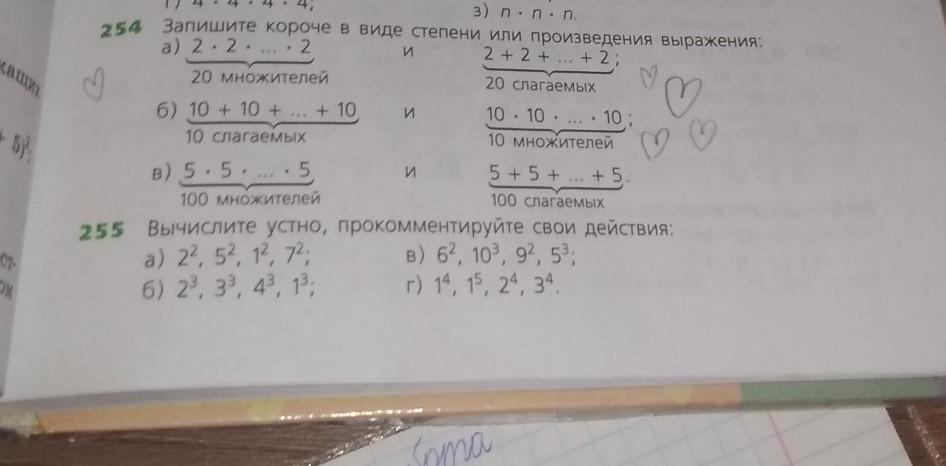 г) 4 · 4 · 4 · 4;
з) n · n · n.
254 Запишите короче в виде степени или произведения выражения:
а) 2 · 2 · ... · 2 и 2 + 2 + ... + 2;
20 множителей 20 слагаемых
б) 10 + 10 + ... + 10 и 10 · 10 · ... · 10;
10 слагаемых 10 множителей
в) 5 · 5 · ... · 5 и 5 + 5 + ... + 5.
100 множителей 100 слагаемых
255 Вычислите устно, прокомментируйте свои действия:
а) 2², 5², 1², 7²; в) 6², 10³, 9², 5³;
б) 2³, 3³, 4³, 1³; г) 1⁴, 1⁵, 2⁴, 3⁴.